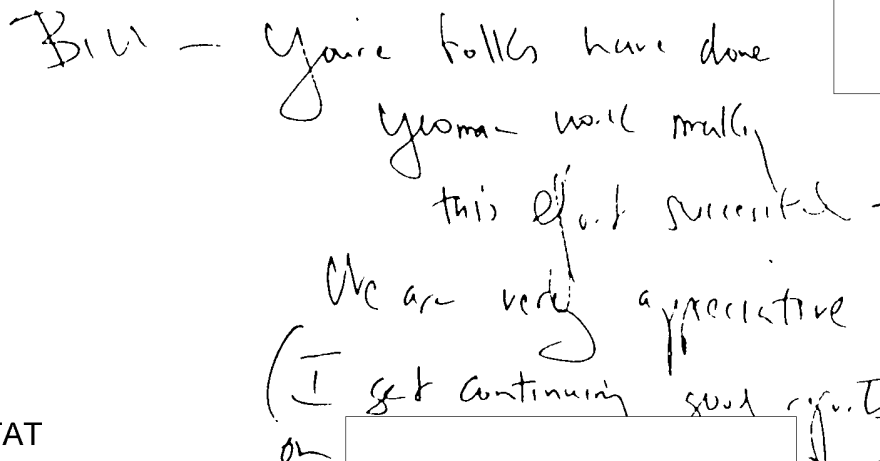 Bill — You're folks have done
yeoman work making
this effort successful -
We are very appreciative
(I get continuing good reports
TAT
on